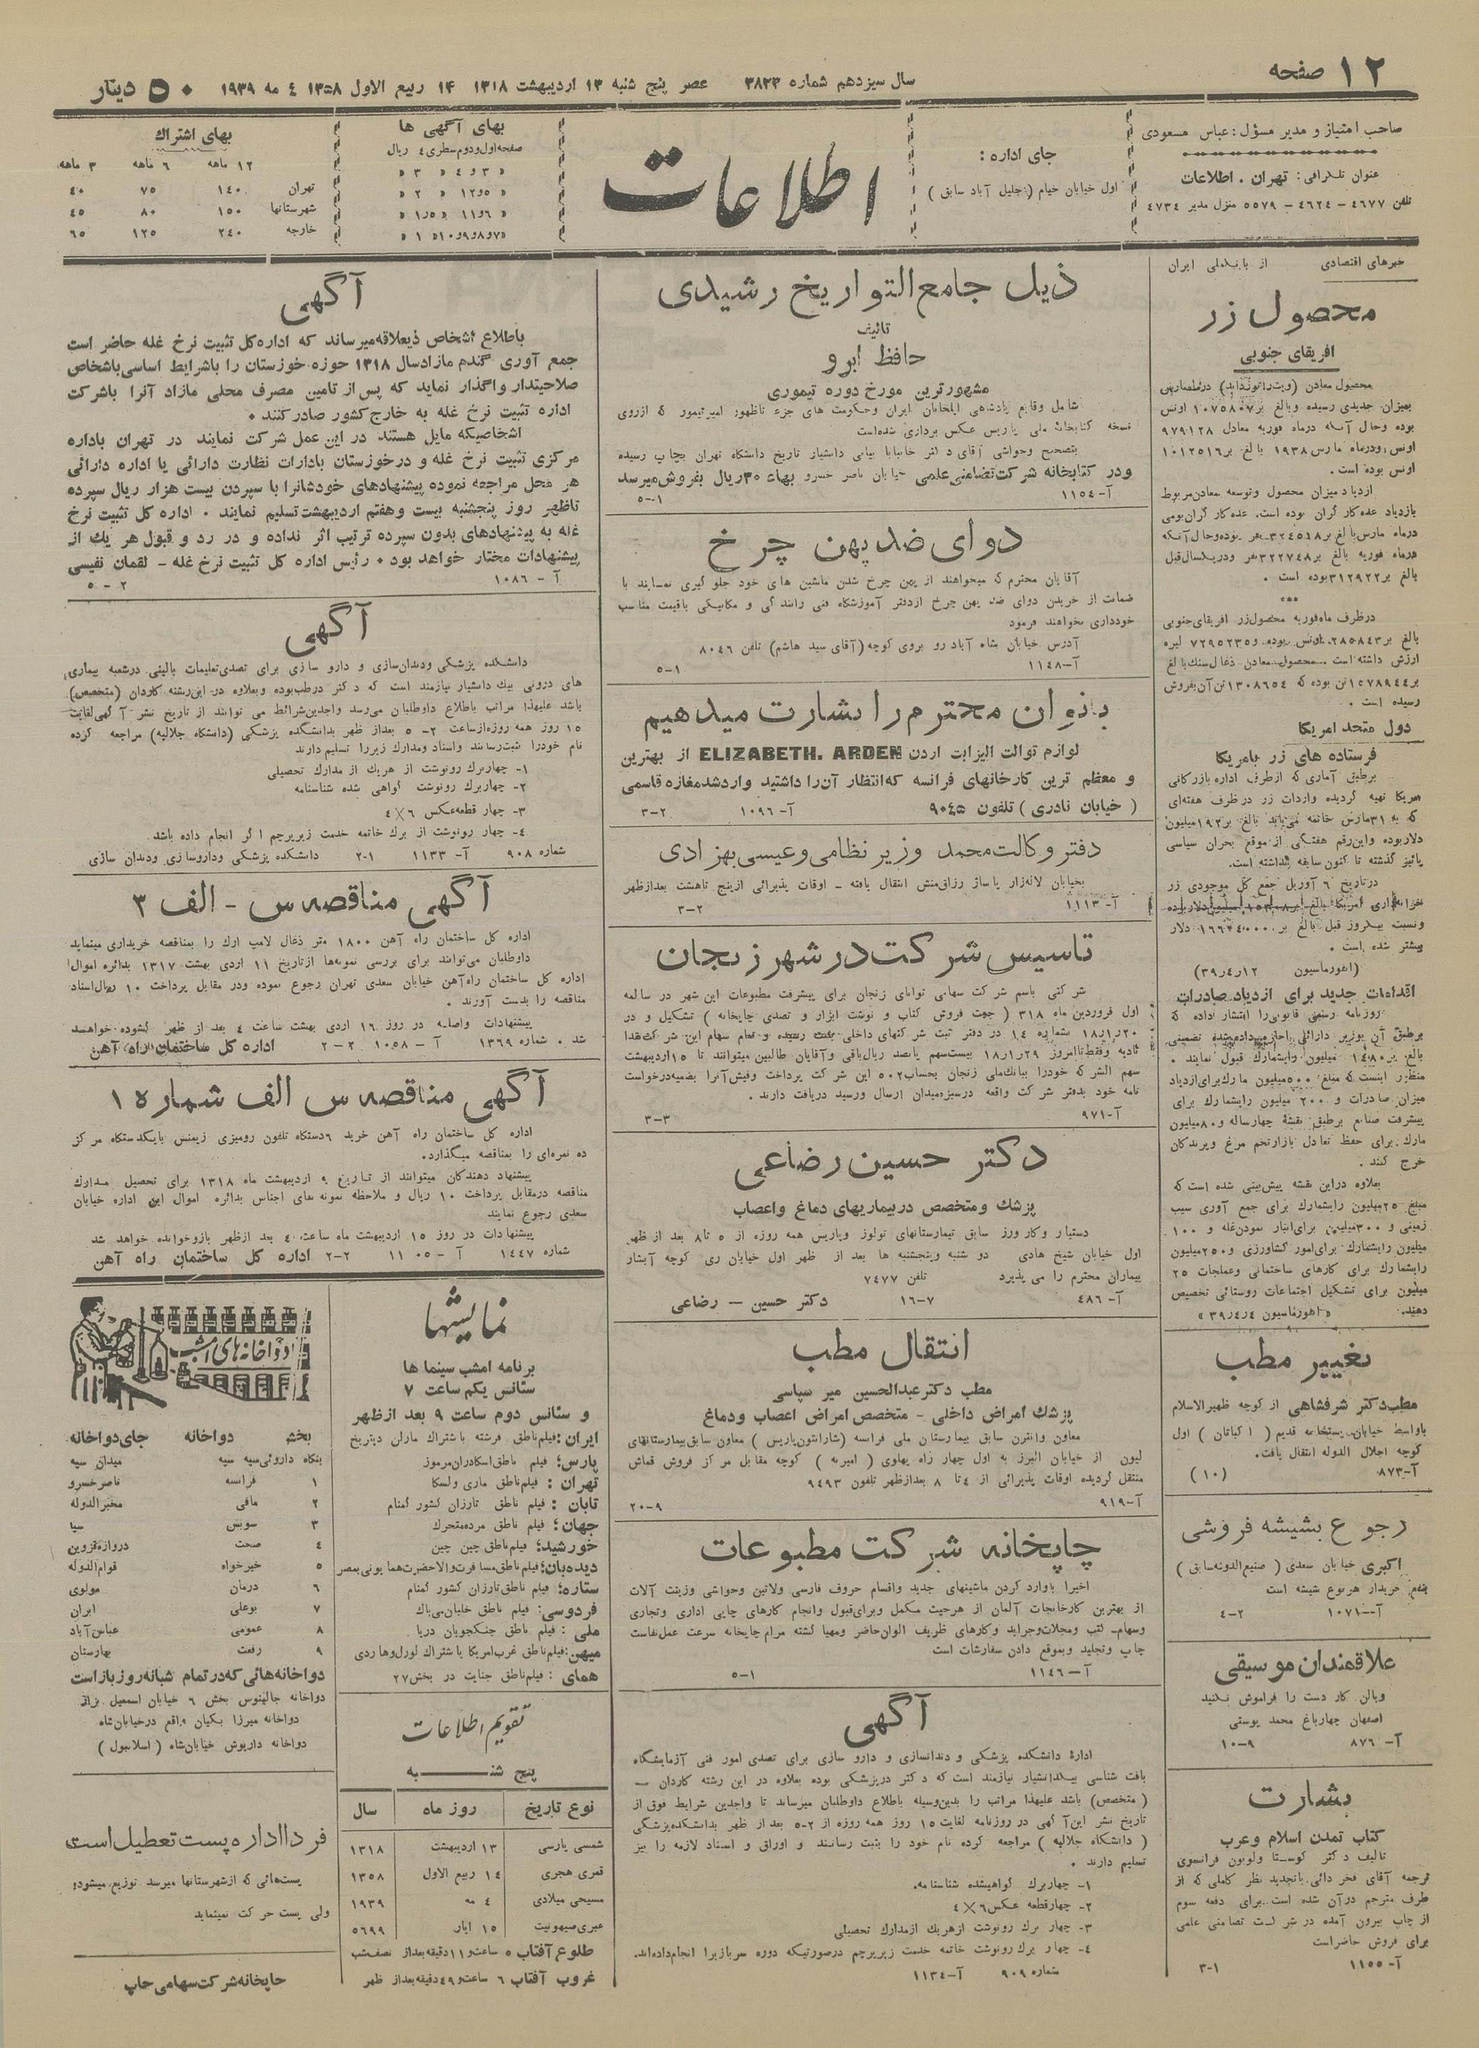 ۱۲ صفحه
سال سیزدهم شماره ۳۸۲۳ عصر پنج شنبه ۱۳ اردیبهشت ۱۳۱۸ ۱۴ ربیع الاول ۱۳۵۸ ٤ مه ۱۹۳۹
۵۰ دینار
صاحب امتیاز و مدیر مسؤل: عباس مسعودی
عنوان تلگرافی: تهران . اطلاعات
تلفن ٤٦۷۷ - ٤٦۲٤ - ۵۵۷۹ منزل مدیر ٤۷۳٤
جای اداره:
اول خیابان خیام (جلیل آباد سابق)
اطلاعات
بهای آگهی ها
صفحه اول و دوم سطری ٤ ریال
« ۳ و ٤ « ۳ «
بهای اشتراك
۱۲ ماهه ٦ ماهه ۳ ماهه
تهران ۱٤۰ ۷۵ ٤۰
شهرستانها ۱۵۰ ۸۰ ٤۵
خارجه ۲٤۰ ۱۲۵ ٦۵
خبرهای اقتصادی
محصول زر
افریقای جنوبی
بمیزان جدیدی رسیده و بالغ بر ۱۰۷۵۸۰۷ اونس
بوده و حال آنکه درماه فوریه معادل ۹۷۹۱۲۸
اونس، ودرماه مارس ۱۹۳۸ بالغ بر ۱۰۱۲۵۱٦
اونس بوده است .
ازدیاد میزان محصول و توسعه معادن مربوط
بازدیاد عده کارگران بوده است. عده کارگران بومی
بالغ بر ۳۱۲۹۲۲ بوده است .
***
درظرف ماه فوریه محصول زر افریقای جنوبی
ارزش داشته است . محصول معادن ذغال سنك بالغ
رسیده است .
دول متحد امریکا
فرستاده های زر بامریکا
برطبق آماری که از طرف اداره بازرگانی
امریکا تهیه گردیده واردات زر در ظرف هفته‌ای
که به ۳۱ مارس خاتمه می‌یابد بالغ بر ۱۹۲ میلیون
دلار بوده و این رقم هفتگی از موقع بحران سیاسی
پائیز گذشته تا کنون سابقه نداشته است.
درتاریخ ٦ آوریل جمع کل موجودی زر
بیشتر شده است .
اقدامات جدید برای ازدیاد صادرات
روزنامه رسمی قانونی را انتشار داده که
میزان صادرات و ۲۰۰ میلیون رایشمارك برای
پیشرفت صنایع برطبق نقشه چهار ساله و ۸۰ میلیون
مارك برای حفظ تعادل بازار تخم مرغ و پرندگان
خرج کنند .
بعلاوه دراین نقشه پیش‌بینی شده است که
مبلغ ۲۵ میلیون رایشمارك برای جمع آوری سیب
زمینی و ۳۰۰ میلیون برای انبار نمودن غله و ۱۰۰
میلیون رایشمارك برای امور کشاورزی و ۲۵۰ میلیون
رایشمارك برای کارهای ساختمانی و عملجات ۲۵
میلیون برای تشکیل اجتماعات روستائی تخصیص
دهند.
تغییر مطب
مطب دکتر شرفشاهی از کوچه ظهیرالاسلام
کوچه اجلال الدوله انتقال یافت.
آ-۸۷۳ (۱۰)
رجوع بشیشه فروشی
اکبری خیابان سعدی ( صنیع الدوله سابق )
خریدار هر نوع شیشه است
آ-۱۰۷۱ ٤-۲
علاقمندان موسیقی
ویالن کار دست را فراموش نکنید
اصفهان چهارباغ محمد یوسفی
آ- ۸۷٦ ۱۰-۹
بشارت
کتاب تمدن اسلام و عرب
تالیف دکتر گوستاو لوبون فرانسوی
ترجمه آقای فخر داعی باتجدید نظر کاملی که از
طرف مترجم در آن شده است. برای دفعه سوم
از چاپ بیرون آمده در شرکت تضامنی علمی
برای فروش حاضر است
آ- ۱۱۵۵ ۳-۱
ذیل جامع التواریخ رشیدی
تالیف
حافظ ابرو
مشهورترین مورخ دوره تیموری
نسخه کتابخانه ملی پاریس عکس برداری شده است
ودر کتابخانه شرکت تضامنی علمی خیابان ناصر خسرو بهاء ۳۰ ریال بفروش میرسد
آ-۱۱۵٤ ۵-۱
دوای ضد پهن چرخ
آقایان محترم که میخواهند از پهن چرخ شدن ماشین های خود جلو گیری نمایند با
ضمانت از خریدن دوای ضد پهن چرخ ازدفتر آموزشگاه فنی رانندگی و مکانیکی باقیمت مناسب
خودداری نخواهند فرمود
آدرس خیابان شاه آباد رو بروی کوچه (آقای سید هاشم) تلفن ۸۰٤٦
آ-۱۱٤۸ ۵-۱
بانوان محترم را بشارت میدهیم
لوازم توالت الیزابت اردن ELIZABETH. ARDEN از بهترین
و معظم ترین کارخانهای فرانسه که انتظار آن را داشتید وارد شد مغازه قاسمی
( خیابان نادری ) تلفون ۹۰٤۵ آ- ۱۰۹٦ ۳-۲
دفتر وکالت محمد وزیر نظامی و عیسی بهزادی
بخیابان لاله‌زار پاساژ رزاق‌منش انتقال یافته - اوقات پذیرائی از پنج تا هشت بعدازظهر
آ-۱۱۱۳ ۳-۲
تاسیس شرکت در شهر زنجان
شرکتی باسم شرکت سهامی توانای زنجان برای پیشرفت مطبوعات این شهر در سالمه
اول فروردین ماه ۳۱۸ ( جهت فروش کتاب و نوشت ابزار و تصدی چاپخانه ) تشکیل و در
سهم الشرکه خودرا ببانك ملی زنجان بحساب ۵۰۲ این شرکت پرداخت و فیش آنرا بضمیه درخواست
نامه خود بدفتر شرکت واقعه در سبزه‌میدان ارسال و رسید دریافت دارند .
آ-۹۷۱ ۳-۳
دکتر حسین رضاعی
پزشك و متخصص در بیماریهای دماغ و اعصاب
دستیار و کار ورز سابق تیمارستانهای تولوز و پاریس همه روزه از ۵ تا ۸ بعد از ظهر
اول خیابان شیخ هادی دو شنبه و پنجشنبه ها بعد از ظهر اول خیابان ری کوچه آبشار
بیماران محترم را می پذیرد تلفن ۷٤۷۷
آ- ٤۸٦ ۱٦-۷ دکتر حسین - رضاعی
انتقال مطب
مطب دکتر عبدالحسین میر سپاسی
پزشك امراض داخلی - متخصص امراض اعصاب و دماغ
معاون و انترن سابق بیمارستان ملی فرانسه (شارانتون پاریس) معاون سابق بیمارستانهای
لیون از خیابان البرز به اول چهار راه پهلوی ( امیریه ) کوچه مقابل مرکز فروش قماش
منتقل گردیده اوقات پذیرائی از ٤ تا ۸ بعدازظهر تلفون ۹٤۹۳
آ-۹۱۹ ۲۰-۹
چاپخانه شرکت مطبوعات
اخیرا باوارد کردن ماشینهای جدید و اقسام حروف فارسی و لاتین و حواشی و زینت آلات
از بهترین کارخانجات آلمان از هرحیث مکمل و برای قبول و انجام کارهای چاپی اداری و تجاری
چاپ و تجلید و بموقع دادن سفارشات است
آ-۱۱٤٦ ۵-۱
آگهی
ادارهٔ دانشکده پزشکی و دندانسازی و دارو سازی برای تصدی امور فنی آزمایشگاه
بافت شناسی بیکدانشیار نیازمند است که دکتر در پزشکی بوده بعلاوه در این رشته کاردان -
( متخصص) باشد علیهذا مراتب را بدین‌وسیله باطلاع داوطلبان میرساند تا واجدین شرایط فوق از
تاریخ نشر این آگهی در روزنامه لغایت ۱۵ روز همه روزه از ۲-۵ بعد از ظهر بدانشکده پزشکی
( دانشگاه جلالیه ) مراجعه کرده نام خود را بثبت رسانند و اوراق و اسناد لازمه را نیز
تسلیم دارند .
۱- چهار برك گواهیشده شناسنامه.
۲- چهار قطعه عکس ٦×٤
۳- چهار برك رونوشت از هریك از مدارك تحصیلی
٤- چهار برك رونوشت خاتمه خدمت زیر پرچم درصورتیکه دوره سربازیرا انجام داده‌اند.
شماره ۹۰۹ آ-۱۱۳٤
آگهی
باطلاع اشخاص ذیعلاقه میرساند که اداره کل تثبیت نرخ غله حاضر است
جمع آوری گندم مازاد سال ۱۳۱۸ حوزه خوزستان را باشرایط اساسی باشخاص
صلاحیتدار واگذار نماید که پس از تامین مصرف محلی مازاد آنرا باشرکت
اداره تثبیت نرخ غله به خارج کشور صادر کنند .
اشخاصیکه مایل هستند در این عمل شرکت نمایند در تهران باداره
مرکزی تثبیت نرخ غله و در خوزستان بادارات نظارت دارائی یا اداره دارائی
هر محل مراجعه نموده پیشنهادهای خودشانرا با سپردن بیست هزار ریال سپرده
تاظهر روز پنجشنبه بیست وهفتم اردیبهشت تسلیم نمایند . اداره کل تثبیت نرخ
غله به پیشنهادهای بدون سپرده ترتیب اثر نداده و در رد و قبول هر یك از
پیشنهادات مختار خواهد بود . رئیس اداره کل تثبیت نرخ غله - لقمان نفیسی
آ - ۱۰۸٦ ۵-۲
آگهی
دانشکده پزشکی و دندان‌سازی و دارو سازی برای تصدی تعلیمات بالینی درشعبه بیماری
های درونی بیك دانشیار نیازمند است که دکتر درطب بوده و بعلاوه در این رشته کاردان (متخصص)
باشد علیهذا مراتب باطلاع داوطلبان می‌رسد واجدین شرائط می توانند از تاریخ نشر آگهی لغایت
۱۵ روز همه روزه ازساعت ۲-۵ بعداز ظهر بدانشکده پزشکی (دانشگاه جلالیه) مراجعه کرده
نام خودرا ثبت رسانند و اسناد و مدارك زیر را تسلیم دارند
۱- چهار برك رونوشت از هریك از مدارك تحصیلی
۲- چهار برك رونوشت گواهی شده شناسنامه
۳- چهار قطعه عکس ٦×٤
٤- چهار رونوشت از برك خاتمه خدمت زیر پرچم اگر انجام داده باشد.
شماره ۹۰۸ آ- ۱۱۳۳ ۲-۱ دانشکده پزشکی و داروسازی و دندان سازی
آگهی مناقصه س - الف ۳
اداره کل ساختمان راه آهن ۱۸۰۰ متر ذغال لامپ ارك را بمناقصه خریداری مینماید
داوطلبان می‌توانند برای بررسی نمونه‌ها از تاریخ ۱۱ اردی بهشت ۱۳۱۷ بدائره اموال
اداره کل ساختمان راه‌آهن خیابان سعدی تهران رجوع نموده و در مقابل پرداخت ۱۰ ریال اسناد
مناقصه را بدست آورند .
پیشنهادات واصله در روز ۱٦ اردی بهشت ساعت ٤ بعد از ظهر گشوده خواهد
شد . شماره ۱۳٦۹ آ- ۱۰۵۸ ۲-۲ اداره کل ساختمان راه آهن
آگهی مناقصه س الف شماره ۱
اداره کل ساختمان راه آهن خرید ٦ دستگاه تلفون رومیزی زیمنس بایکدستگاه مرکز
ده نمره‌ای را بمناقصه میگذارد.
پیشنهاد دهندگان میتوانند از تاریخ ۹ اردیبهشت ماه ۱۳۱۸ برای تحصیل مدارك
مناقصه درمقابل پرداخت ۱۰ ریال و ملاحظه نمونه های اجناس بدائره اموال این اداره خیابان
سعدی رجوع نمایند
پیشنهادات در روز ۱۵ اردیبهشت ماه ساعت ٤ بعد ازظهر باز و خوانده خواهد شد
شماره ۱٤٤۷ آ - ۱۱۰۵ ۲-۲ اداره کل ساختمان راه آهن
نمایشها
برنامه امشب سینما ها
سئانس یکم ساعت ۷
و سئانس دوم ساعت ۹ بعد ازظهر
ایران: فیلم ناطق فرشته با شتراك مارلن دیتریخ
پارس: فیلم ناطق اسکادران مرموز
تهران: فیلم ناطق ماری ولسکا
تابان: فیلم ناطق تارزان کشور گمنام
جهان: فیلم ناطق مرده متحرك
خورشید: فیلم ناطق چین چین
دیده‌بان: فیلم ناطق مسافرت والاحضرت همایونی بمصر
ستاره: فیلم ناطق تارزان کشور گمنام
فردوسی: فیلم ناطق خلبان بی‌باك
ملی: فیلم ناطق جنگجویان دریا
میهن: فیلم ناطق غرب امریکا باشتراك لورل وهاردی
همای: فیلم ناطق جنایت در بخش ۲۷
تقویم اطلاعات
پنج شنبه
نوع تاریخ روز ماه سال
شمسی پارسی ۱۳ اردیبهشت ۱۳۱۸
قمری هجری ۱٤ ربیع الاول ۱۳۵۸
مسیحی میلادی ٤ مه ۱۹۳۹
عبری صیهونیت ۱۵ ایار ۵٦۹۹
طلوع آفتاب ۵ ساعت و ۱۱ دقیقه بعداز نصف شب
غروب آفتاب ٦ ساعت و ٤۹ دقیقه بعداز ظهر
دواخانه های امشب
بخش دواخانه جای دواخانه
بنگاه داروئی سپه سپه میدان سپه
۱ فرانسه ناصر خسرو
۲ مافی مخبرالدوله
۳ سویس سپا
٤ صحت دروازه قزوین
۵ خیرخواه قوام الدوله
٦ درمان مولوی
۷ بوعلی ایران
۸ عمومی عباس آباد
۹ رفعت بهارستان
دواخانه هائی که در تمام شبانه روز باز است
دواخانه جالینوس بخش ٦ خیابان اسمعیل بزاز
دواخانه میرزا یکیان واقع درخیابان شاه
دواخانه داریوش خیابان شاه ( اسلامبول )
فردا اداره پست تعطیل است
پست‌هائی که از شهرستانها میرسد توزیع میشود
ولی پست حرکت نمینماید
چاپخانه شرکت سهامی چاپ